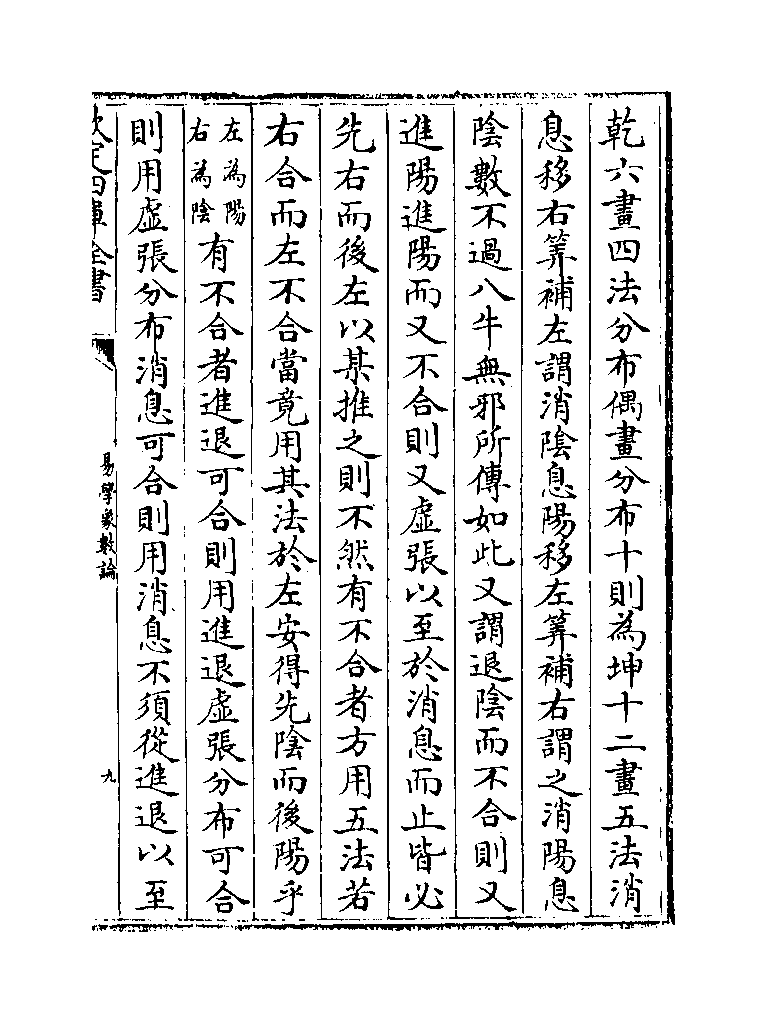 乾六畫四法分布偶畫分布十則為坤十二畫五法消
息移右筭補左謂消陰息陽移左筭補右謂之消陽息
陰數不過八牛無邪所傳如此又謂退陰而不合則又
進陽進陽而又不合則又虛張以至於消息而止皆必
先右而後左以某推之則不然有不合者方用五法若
右合而左不合當竟用其法於左安得先陰而後陽乎
左為陽
右為陰
有不合者進退可合則用進退虛張分布可合
則用虛張分布消息可合則用消息不須從進退以至
欽定四庫全書
易學象數論
九